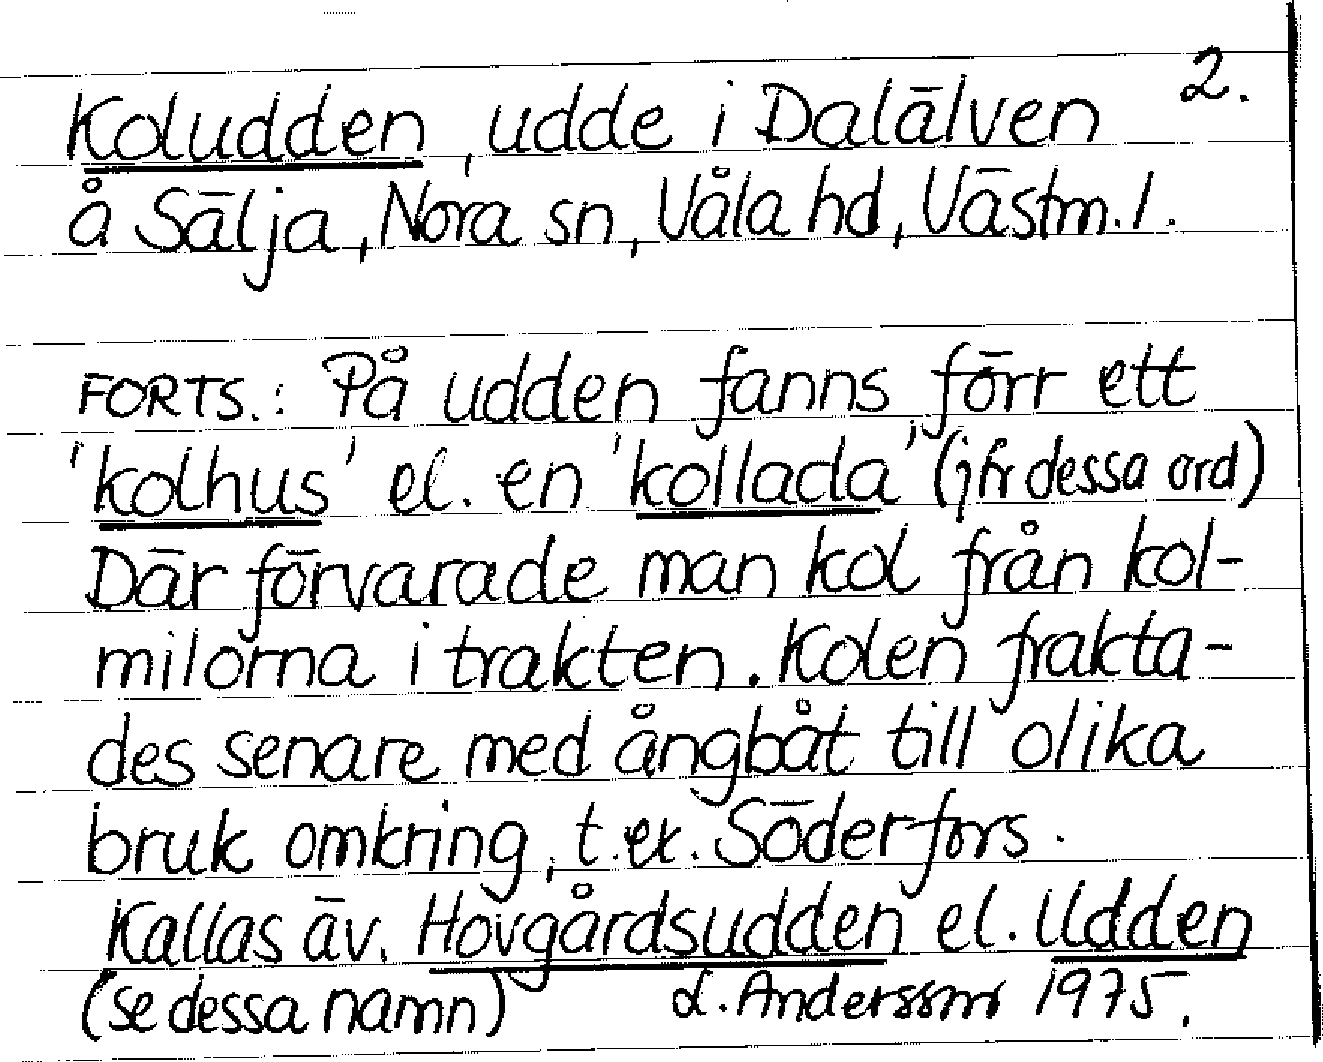 2.
Koludden, udde i Dalälven
å Sälja, Nora sn, Våla hd, Västm. l.
FORTS.: På udden fanns förr ett
'kolhus' el. en 'kollada', (jfr dessa ord)
Där förvarade man kol från kol-
milorna i trakten. Kolen frakta-
des senare med ångbåt till olika
bruk omkring, t.ex. Söderfors.
Kallas äv. Hovgårdsudden el. Udden
(se dessa namn) L. Andersson 1975.